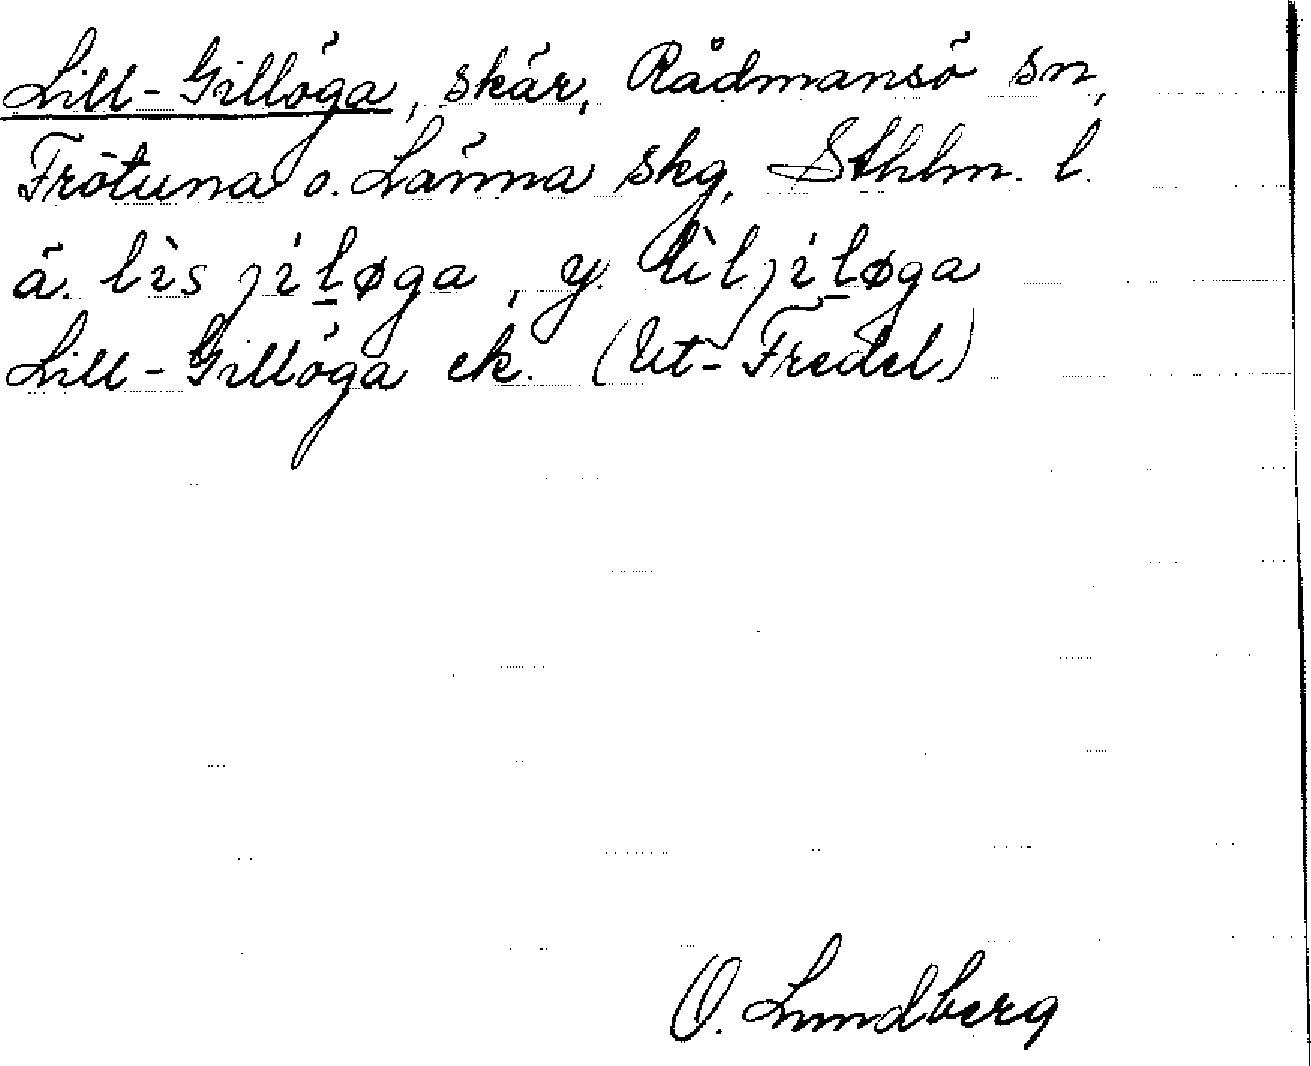 Lill-Gillöga, skär, Rådmansö sn,
Frötuna o. Länna skg, Sthlm. l.
ä. lìs jíḻøga, y. lìl jíḻøga
Lill-Gillöga ek. (Ut-Fredel)
O. Lundberg